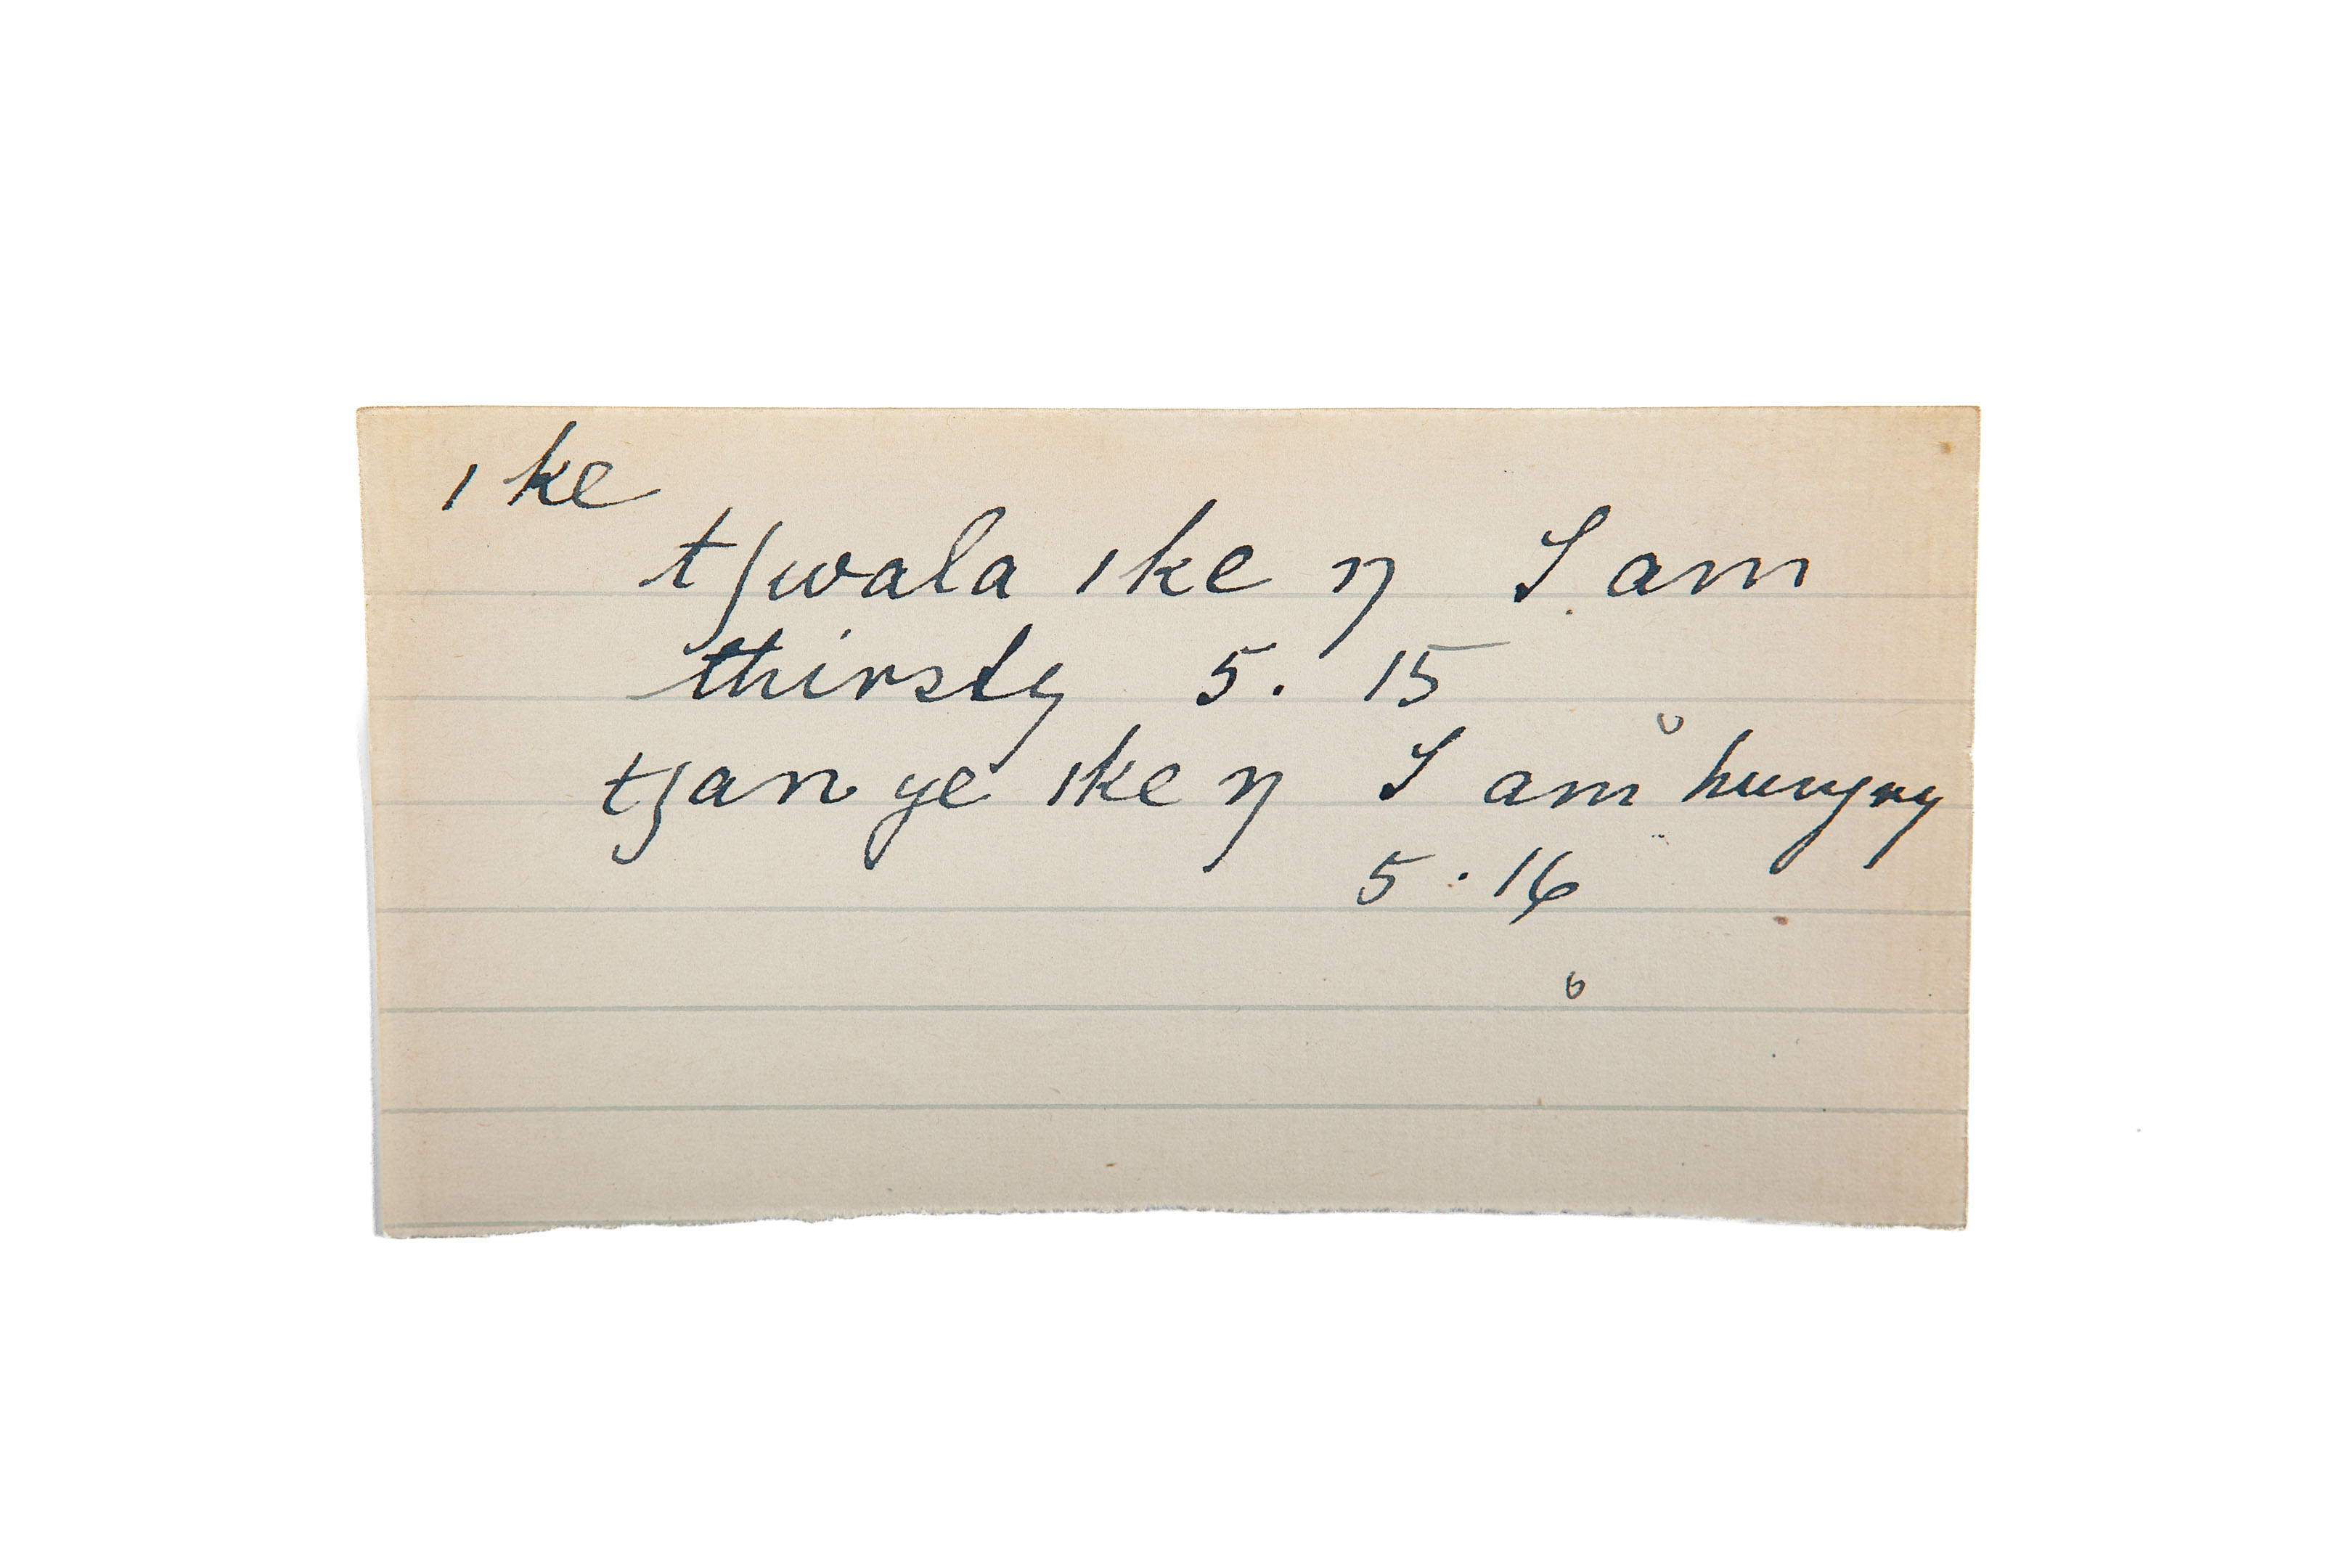 ıke
tʃwala ıke ŋ I am
thirsty 5. 15
tʒan ye ıke ŋ I am hungry
5 . 16